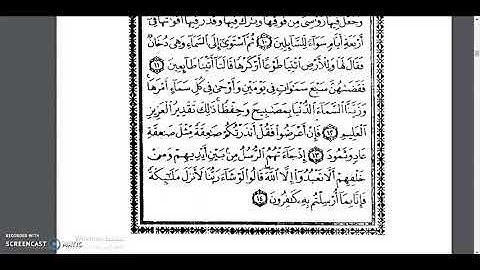 وَجَعَلَ فِيهَا رَوَٰسِىَ مِن فَوْقِهَا وَبَٰرَكَ فِيهَا وَقَدَّرَ فِيهَآ أَقْوَٰتَهَا فِىٓ
أَرْبَعَةِ أَيَّامٍ سَوَآءً لِّلسَّآئِلِينَ ١٠ ثُمَّ ٱسْتَوَىٰٓ إِلَى ٱلسَّمَآءِ وَهِىَ دُخَانٌ
فَقَالَ لَهَا وَلِلْأَرْضِ ٱئْتِيَا طَوْعًا أَوْ كَرْهًا قَالَتَآ أَتَيْنَا طَآئِعِينَ ١١
فَقَضَىٰهُنَّ سَبْعَ سَمَٰوَاتٍ فِى يَوْمَيْنِ وَأَوْحَىٰ فِى كُلِّ سَمَآءٍ أَمْرَهَا
وَزَيَّنَّا ٱلسَّمَآءَ ٱلدُّنْيَا بِمَصَٰبِيحَ وَحِفْظًا ذَٰلِكَ تَقْدِيرُ ٱلْعَزِيزِ
ٱلْعَلِيمِ ١٢ فَإِنْ أَعْرَضُوا۟ فَقُلْ أَنذَرْتُكُمْ صَٰعِقَةً مِّثْلَ صَٰعِقَةِ
عَادٍ وَثَمُودَ ١٣ إِذْ جَآءَتْهُمُ ٱلرُّسُلُ مِنۢ بَيْنِ أَيْدِيهِمْ وَمِنْ
خَلْفِهِمْ أَلَّا تَعْبُدُوٓا۟ إِلَّا ٱللَّهَ قَالُوا۟ لَوْ شَآءَ رَبُّنَا لَأَنزَلَ مَلَٰٓئِكَةً
فَإِنَّا بِمَآ أُرْسِلْتُم بِهِۦ كَٰفِرُونَ ١٤
RECORDED WITH
SCREENCAST MATIC